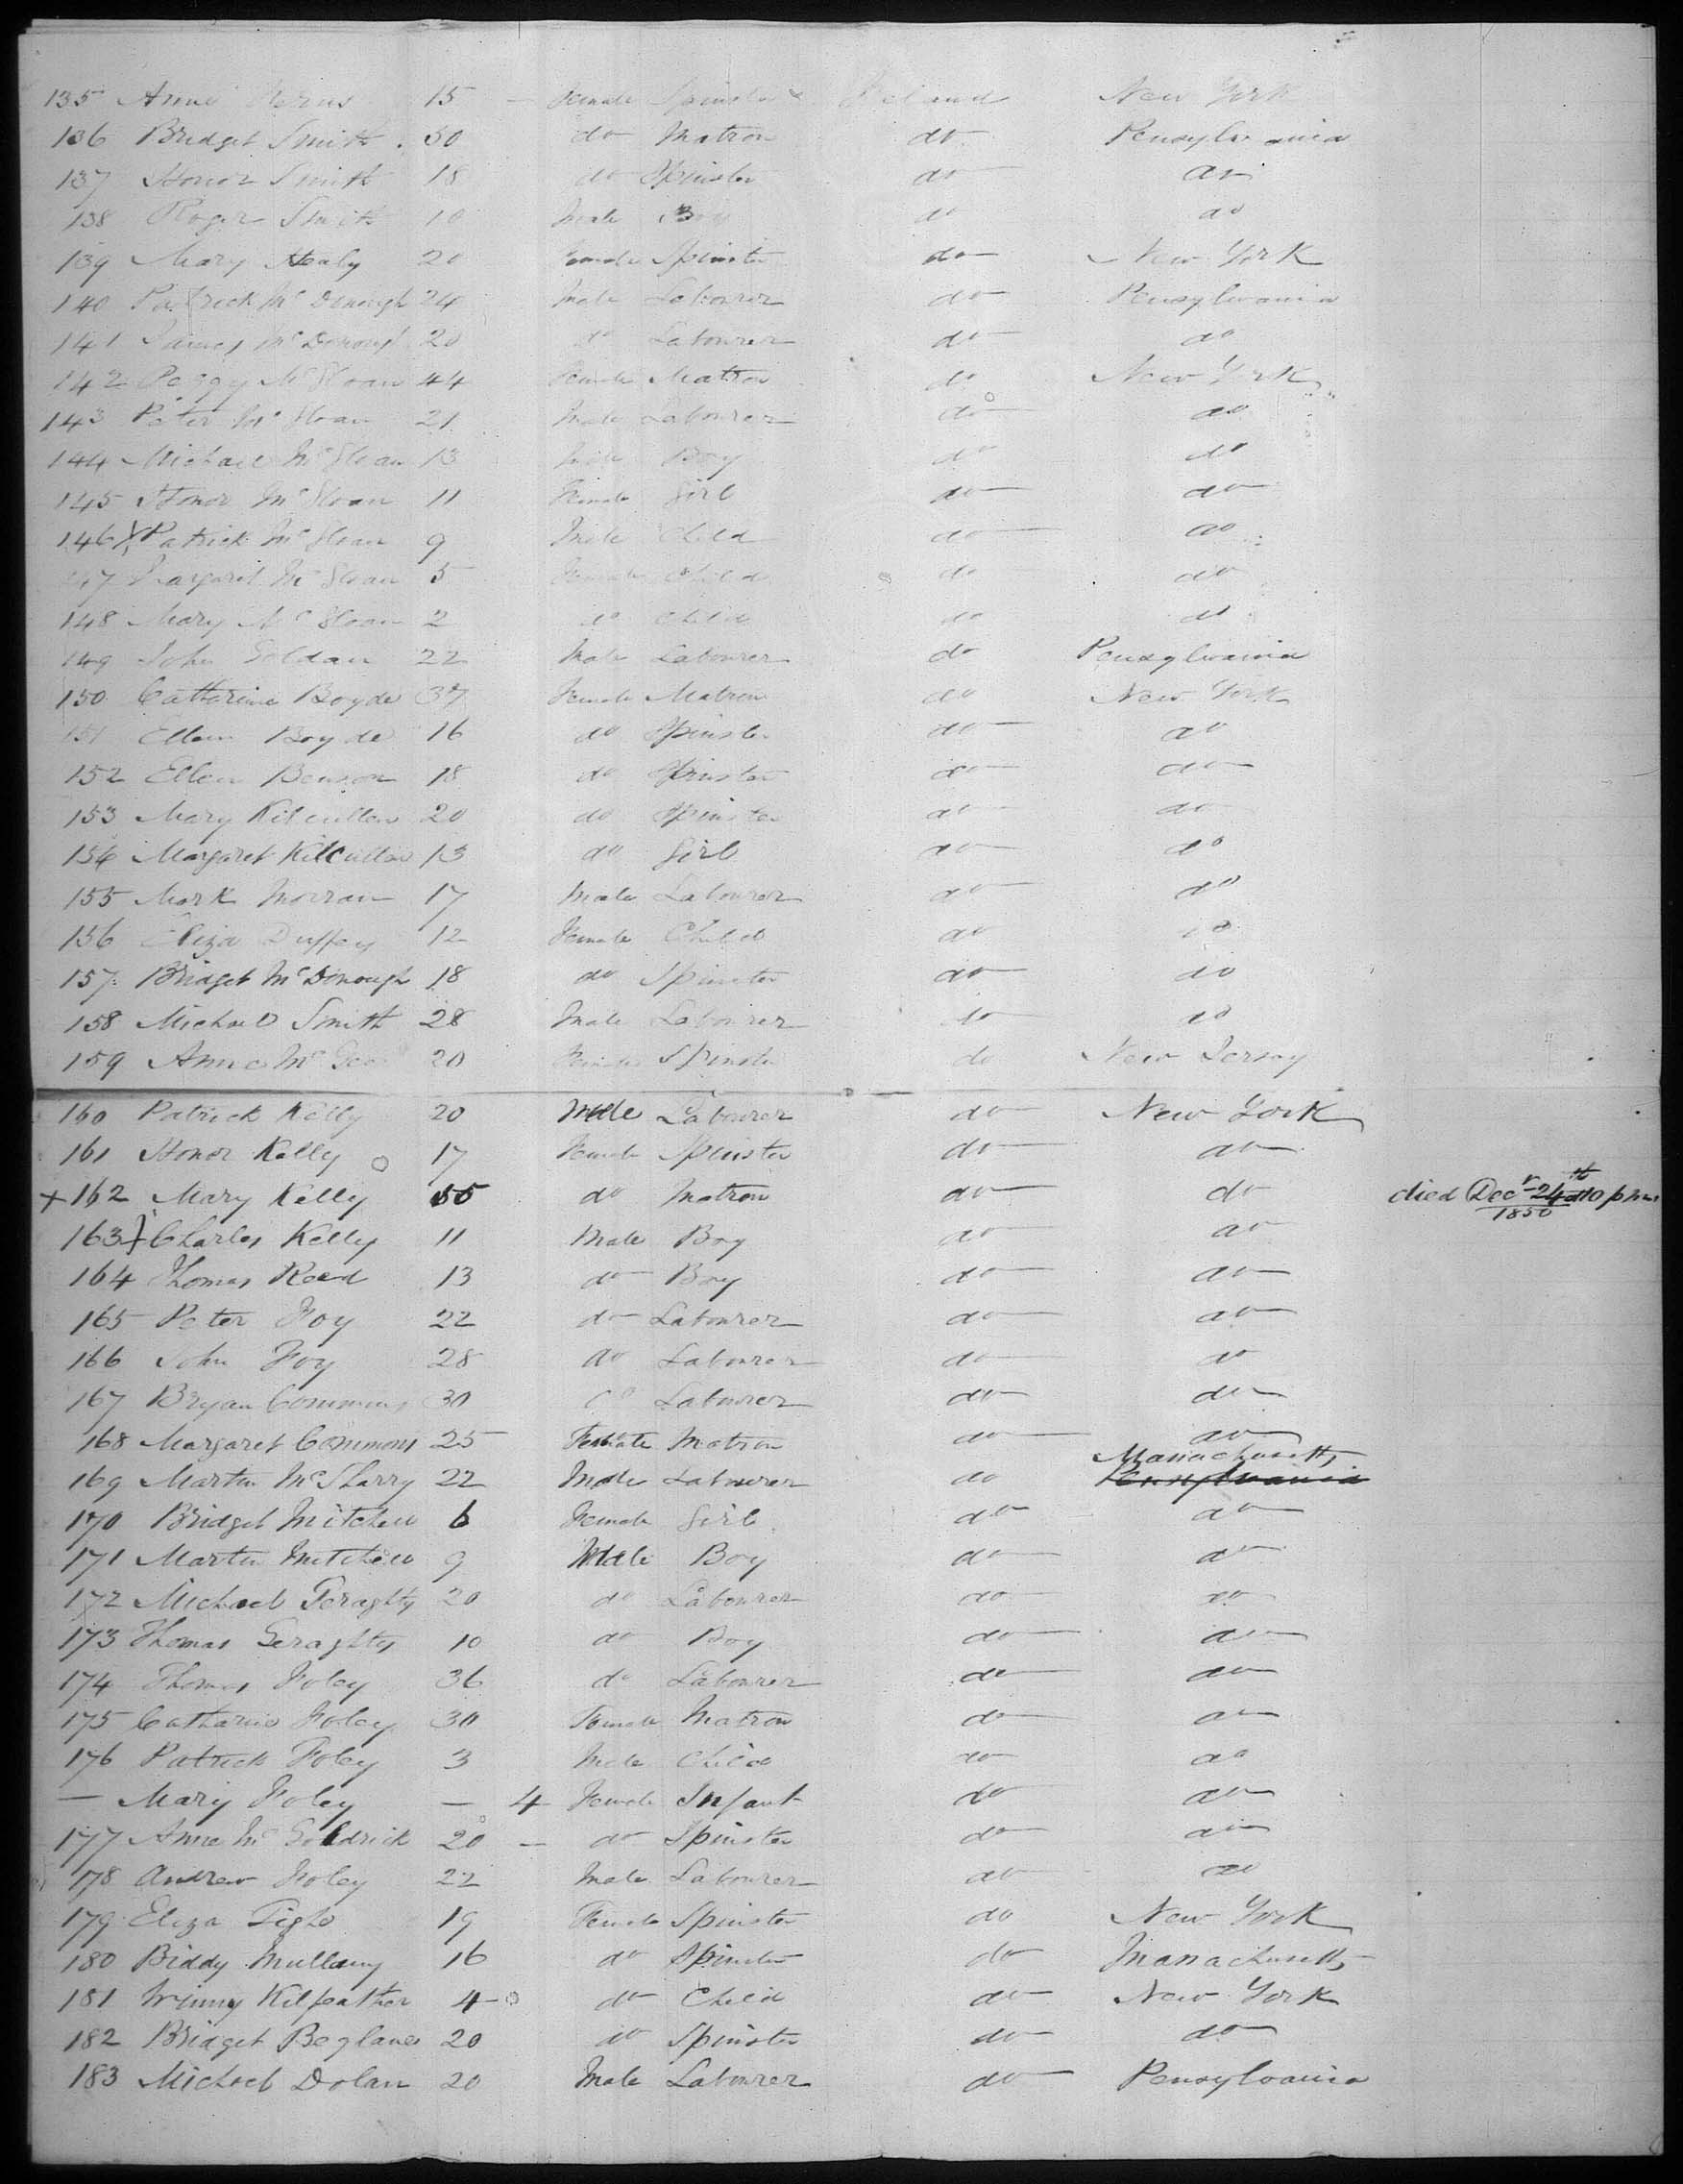 135 Anne 15 — Female Spinster Ireland New York
136 Bridget Smith 50 do Matron do Pensylvania
137 Honor Smith 18 do Spinster do do
138 Roger Smith 10 Male Boy do do
139 Mary Healy 20 Female Spinster do New York
140 Patrick McDonough 24 Male Labourer do Pensylvania
141 James McDonough 20 do Labourer do do
142 Peggy McSloan 44 Female Matron do New York
143 Peter McSloan 21 Male Labourer do do
144 Michael McSloan 13 Male Boy do do
145 Honor McSloan 11 Female Girl do do
146 Patrick McSloan 9 Male Child do do
147 Margaret McSloan 5 Female Child do do
148 Mary McSloan 2 do Child do do
149 John Goldan 22 Male Labourer do Pensylvania
150 Catherine Boyde 37 Female Matron do New York
151 Ellen Boyde 16 do Spinster do do
152 Ellen Benson 18 do Spinster do do
153 Mary Kilcullen 20 do Spinster do do
154 Margaret Kilcullen 13 do Girl do do
155 Mark Morran 17 Male Labourer do do
156 Eliza Duffey 12 Female Child do do
157 Bridget McDonough 18 do Spinster do do
158 Michael Smith 28 Male Labourer do do
159 Anne 20 Female Spinster do New Jersey
160 Patrick Kelly 20 Male Labourer do New York
161 Honor Kelly 17 Female Spinster do do
+ 162 Mary Kelly 55 do Matron do do died Decr 24th at 10 pm 1850
163 Charles Kelly 11 Male Boy do do
164 Thomas Reed 13 do Boy do do
165 Peter Foy 22 do Labourer do do
166 John Foy 28 do Labourer do do
167 Bryan Commons 30 do Labourer do do
168 Margaret Commons 25 Female Matron do do
169 Martin McSharry 22 Male Labourer do Massachusetts Pensylvania
170 Bridget Mitchell 6 Female Girl do do
171 Martin Mitchell 9 Male Boy do do
172 Michael Geraghty 20 do Labourer do do
173 Thomas Geraghty 10 do Boy do do
174 Thomas Foley 36 do Labourer do do
175 Catharine Foley 30 Female Matron do do
176 Patrick Foley 3 Male Child do do
— Mary Foley — 4 Female Infant do do
177 Anne McGoldrick 20 — do Spinster do do
178 Andrew Foley 22 Male Labourer do do
179 Eliza Tighe 19 Female Spinster do New York
180 Biddy Mullany 16 do Spinster do Massachusetts
181 Winny Kilfeather 4 do Child do New York
182 Bridget Beglane 20 do Spinster do do
183 Michael Dolan 20 Male Labourer do Pensylvania